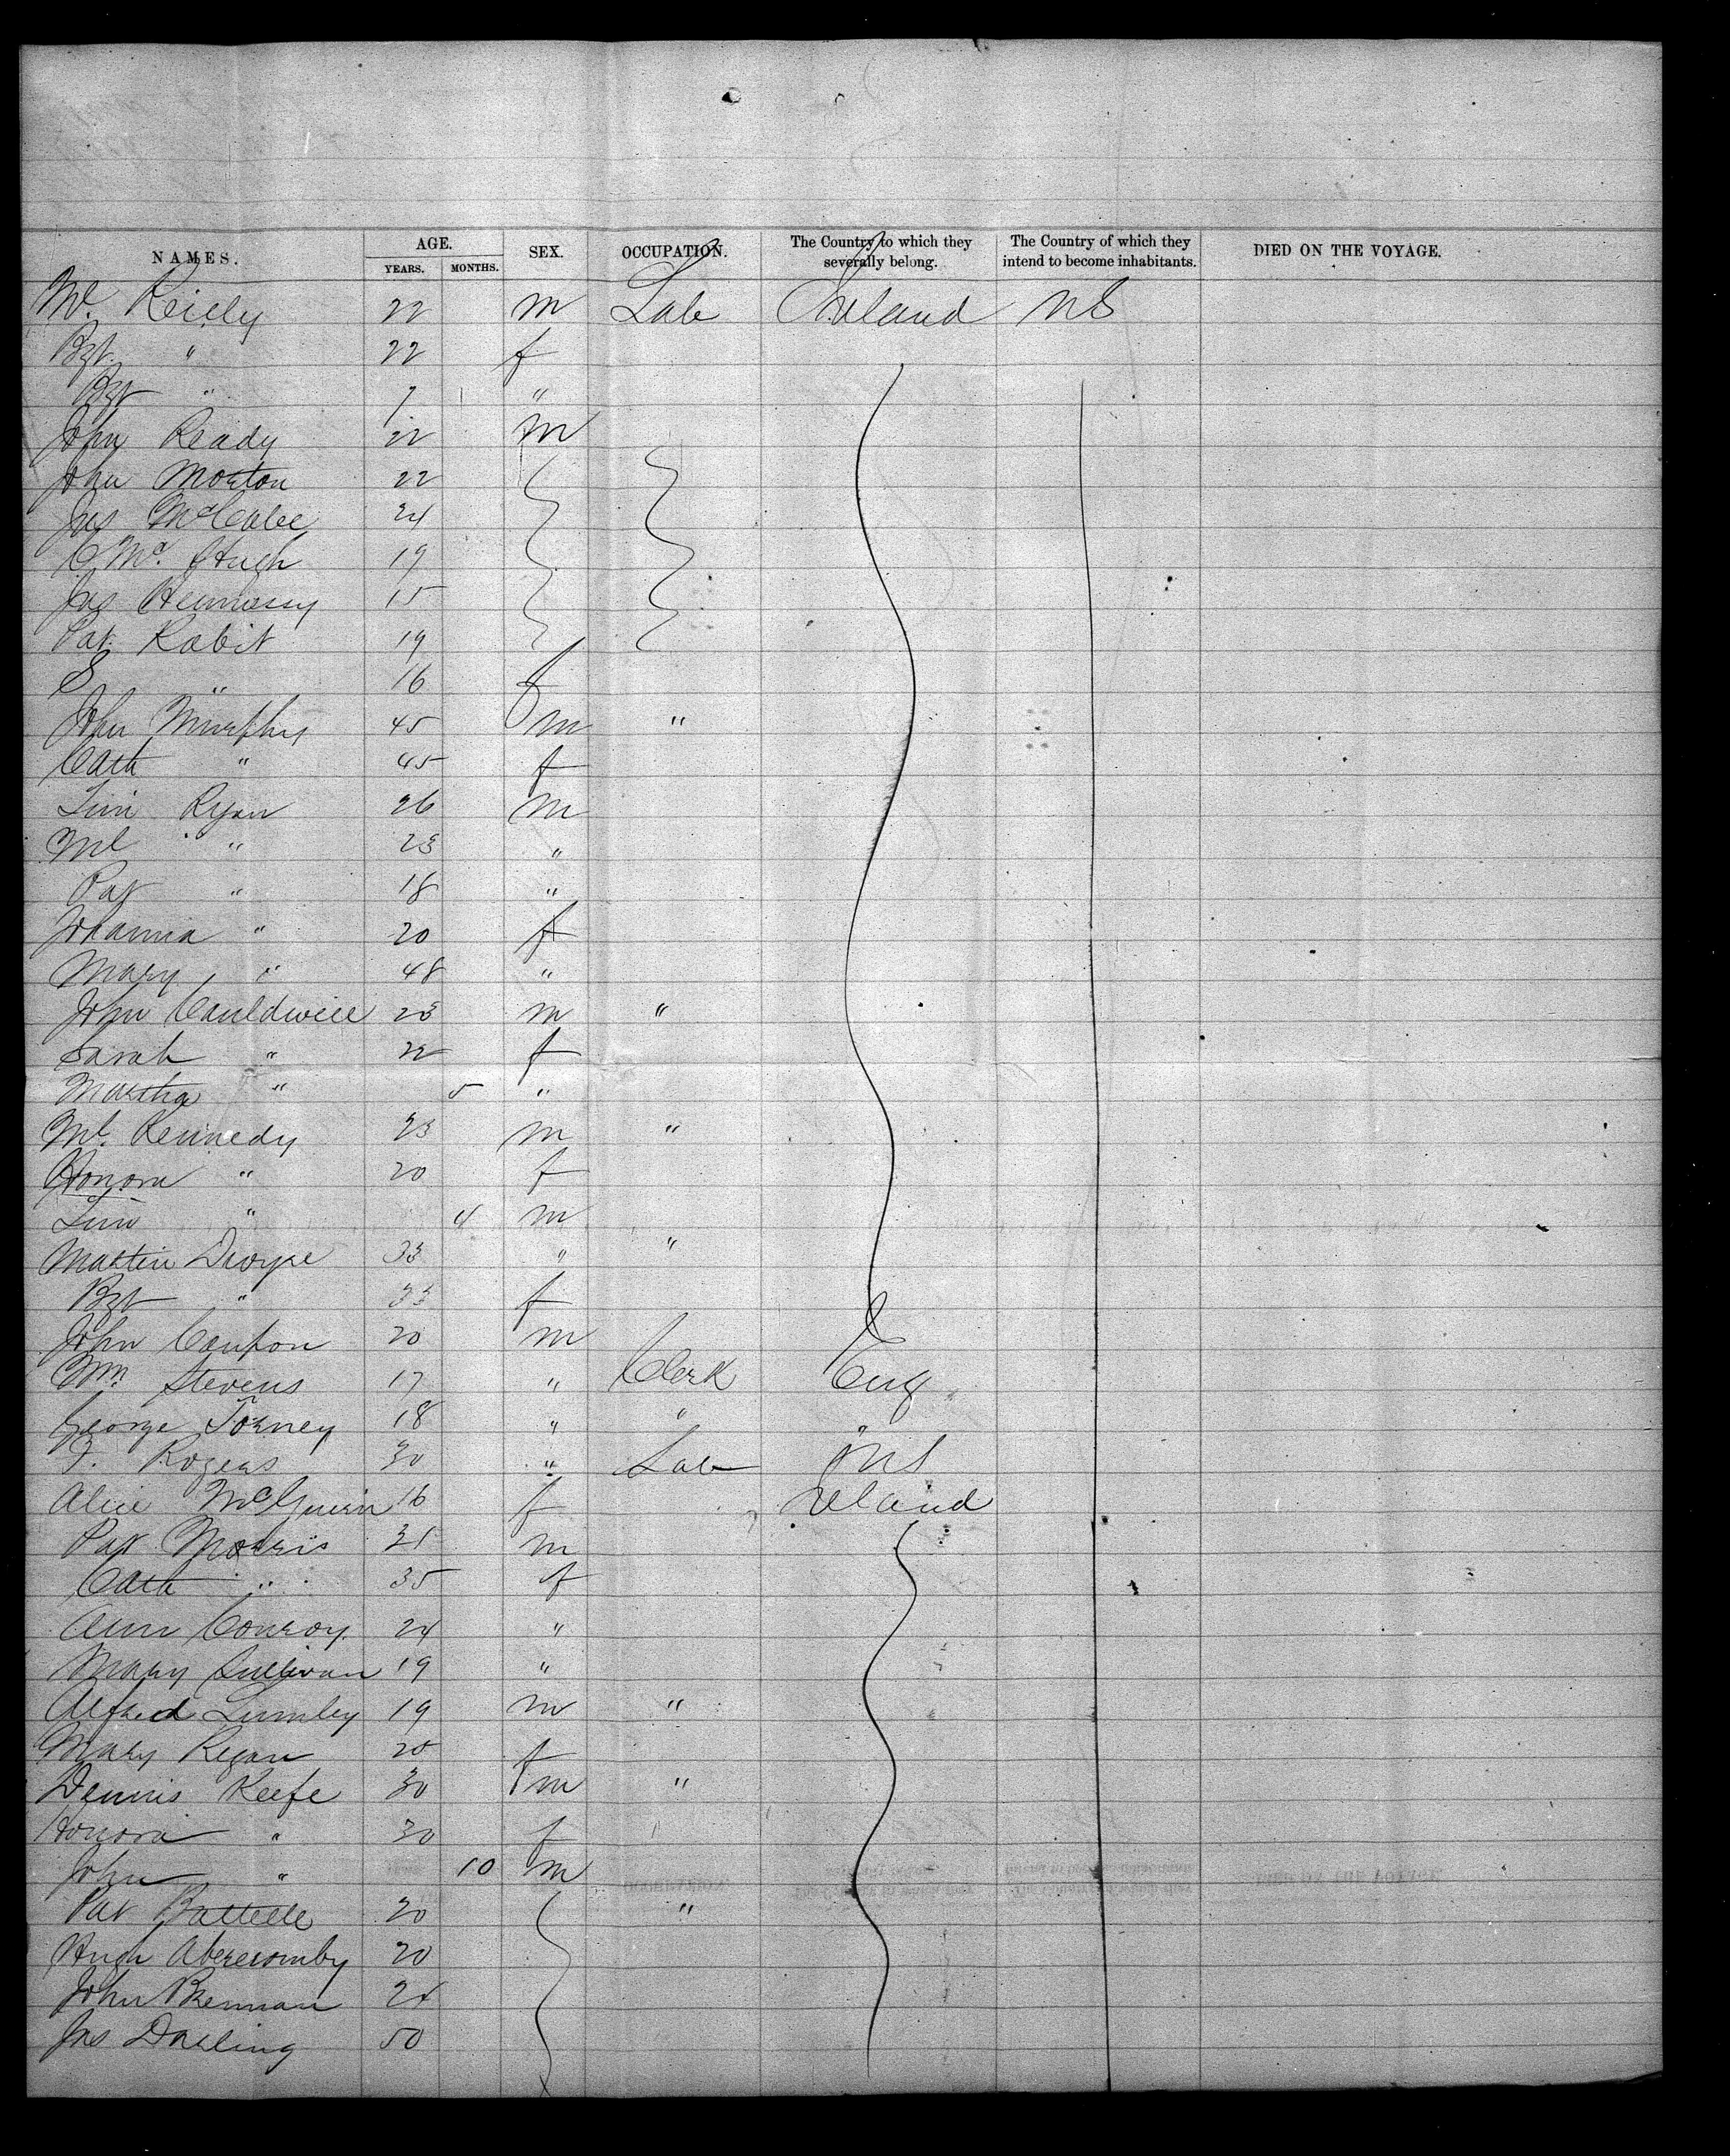 NAMES. AGE. YEARS. MONTHS. SEX. OCCUPATION. The Country to which they severally belong. The Country of which they intend to become inhabitants. DIED ON THE VOYAGE.
Ml. Reilly 22 m Lab Ireland US
Bgt. " 22 f
Bgt " "
John Ready 22 m
John Morton 22
Jas McCabe 24
C Mc. Hugh 19
Jas Hennessy 15
Pat Rabit 19
S " 16 f
John Murphy 45 m "
Cath " 45 f
Tim Ryan 26 m
Ml " 23 "
Pat " 18 "
Johanna " 20 f
Mary " 48 "
John Cauldwell 23 m "
Sarah " 22 f
Martha " 5 "
Ml. Kennedy 23 m "
Honora " 20 f
Tim " 4 m
Martin 33 " "
Bgt " 33 f
John 20 m
Wm Stevens 17 " Clerk Eng
George Torney 18 " " "
F. Rogers 30 " Lab US
Alice McGuirn 16 f Ireland
Pat Morris 35 m
Cath " 35 f
Ann Conroy 24 "
Mary Sullivan 19 "
Alfred Lumley 19 m "
Mary Regan 20 f
Dennis Keefe 30 m "
Honora " 30 f
John " 10 m
Pat Battelle 20 "
Hugh Abercromby 20
John Brennan 24
Jas Darling 50